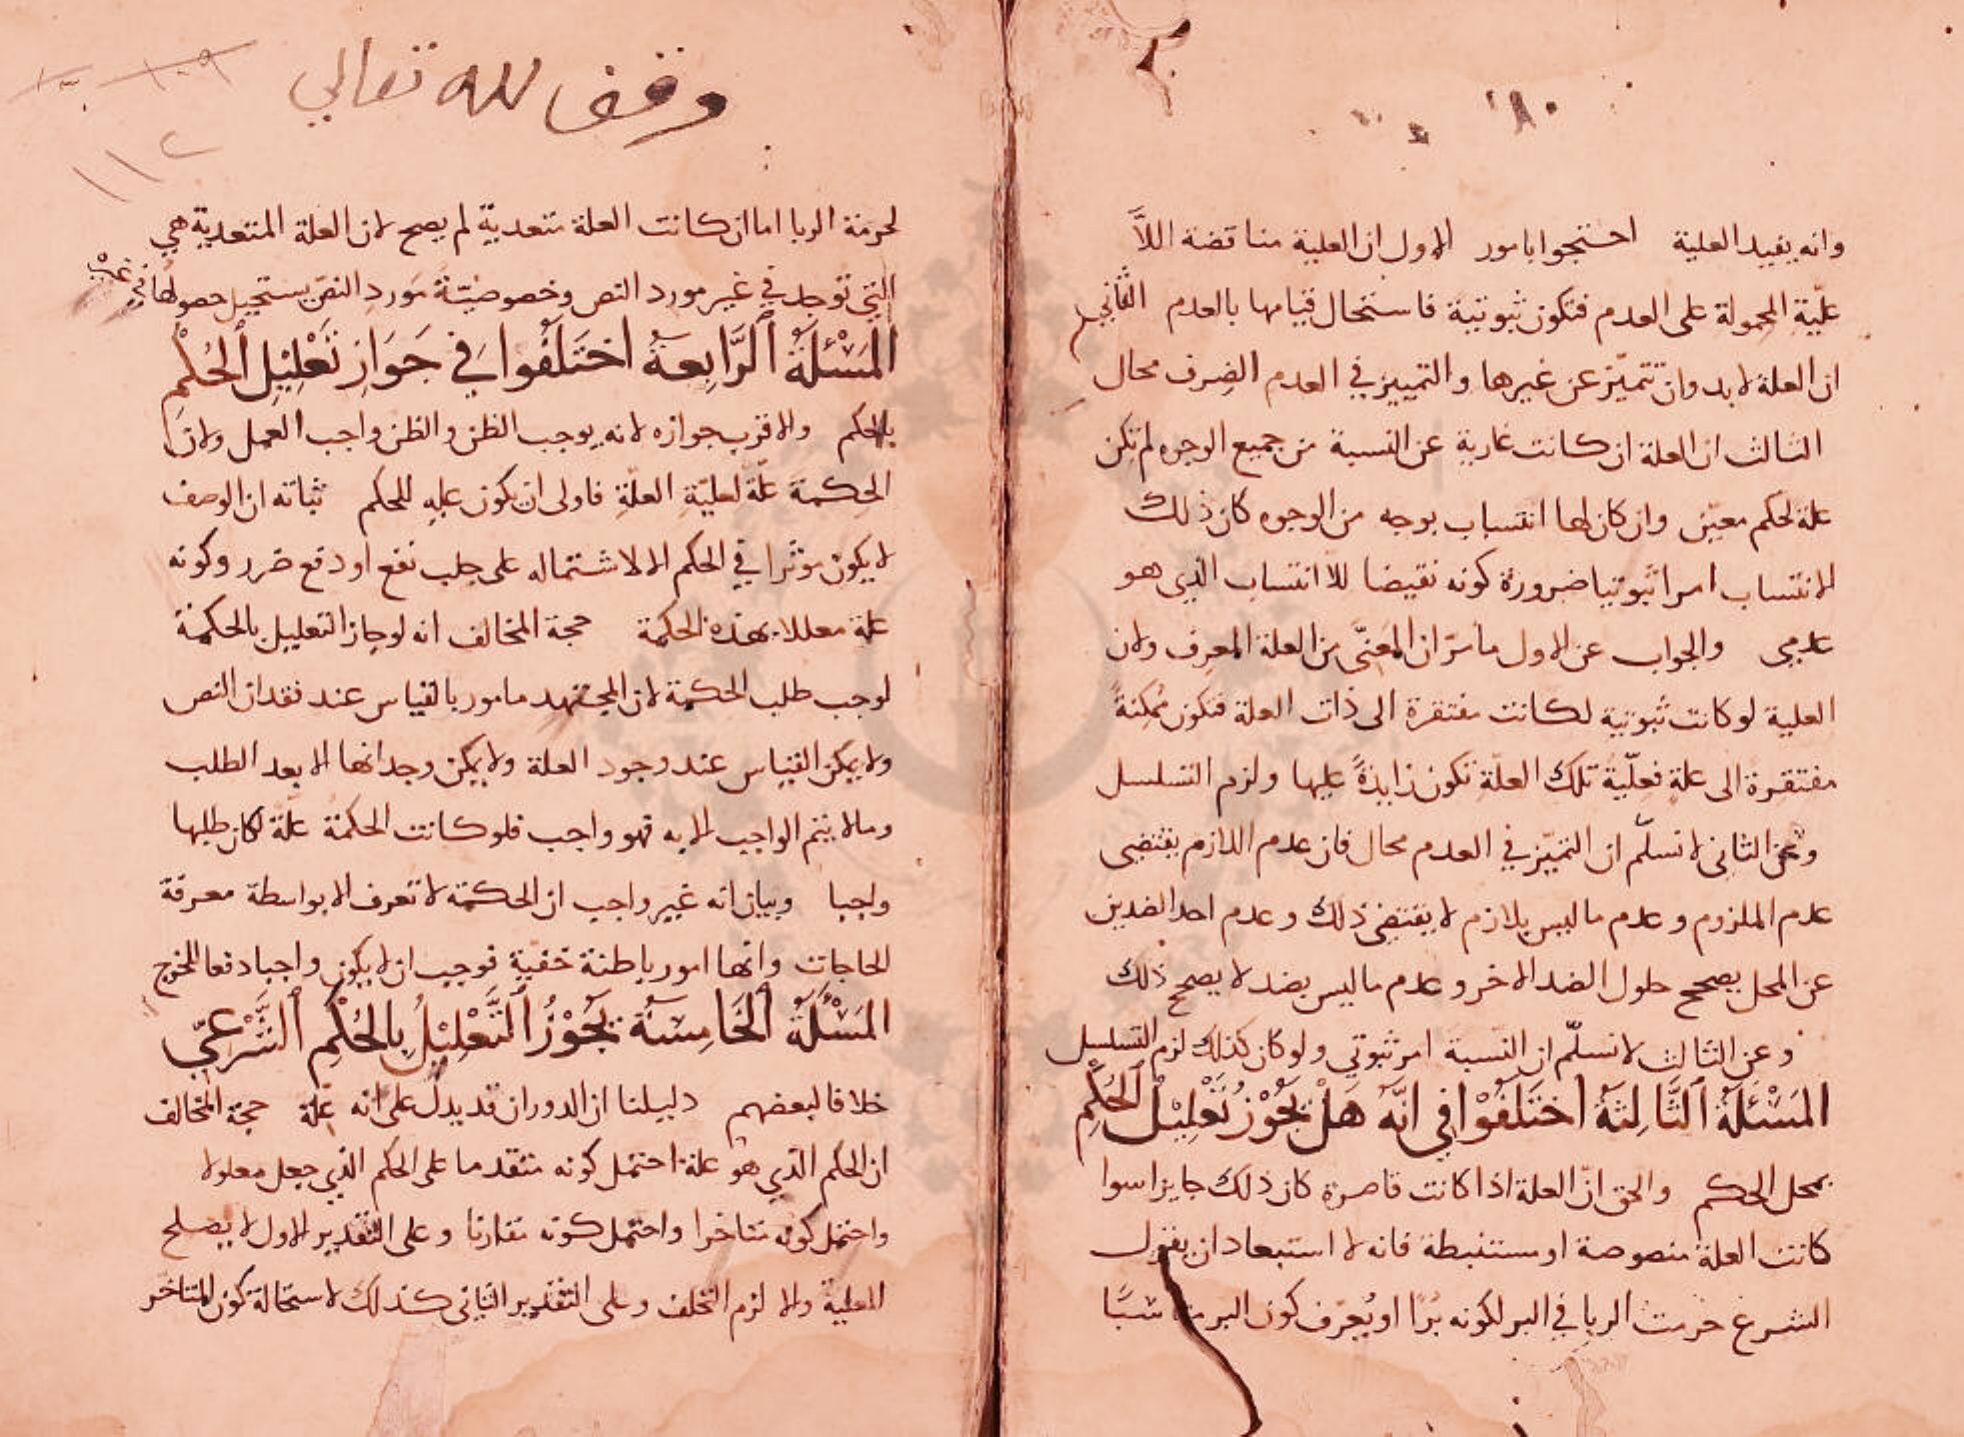 وانه يفيد العلية احتجوا بامور الاول ان العلية مناقضة اللا
علية المحمولة على العدم فتكون ثبوتية فاستحال قيامها بالعدم الثاني
ان العلة لا بد وان تتميز عن غيرها والتمييز في العدم الصرف محال
الثالث ان العلة ان كانت عارية عن النسبة من جميع الوجوه لم تكن
علة لحكم معين وان كان لها انتساب بوجه من الوجوه كان ذلك
الانتساب امرا ثبوتيا ضرورة كونه نقيضا للاانتساب الذي هو
عدمي والجواب عن الاول ما مر ان المعني من العلة المعرف ولان
العلية لو كانت ثبوتية لكانت مفتقرة الى ذات العلة فتكون ممكنة
مفتقرة الى علة فعلية تلك العلة تكون زايدة عليها ولزم التسلسل
وعن الثاني لا نسلم ان التميز في العدم محال فان عدم اللازم يقتضي
عدم الملزوم وعدم ما ليس بلازم لا يقتضي ذلك وعدم احد الضدين
عن المحل يصحح حلول الضد الاخر وعدم ما ليس بضد لا يصحح ذلك
وعن الثالث لا نسلم ان النسبة امر ثبوتي ولو كان كذلك لزم التسلسل
المَسْئَلَةُ الثَّالِثَةُ اختَلَفُوا في انَّهُ هَلْ يَجُوْزُ تَعْلِيْلُ الحُكْمِ
بمحل الحكم والحق ان العلة اذا كانت قاصرة كان ذلك جايزا سوا
كانت العلة منصوصة او مستنبطة فانه لا استبعاد ان يقول
الشرع حرمت الربا في البر لكونه بُرًّا او يُعرّف كون البر مناسبًا
وقف لله تعالى
١١٢
لحرمة الربا اما ان كانت العلة متعدية لم يصح لان العلة المتعدية هي
التي توجد في غير مورد النص وخصوصيّة مورد النص يستحيل حصولها في غيره
المَسْئَلَةُ الرَّابِعَةُ اختَلَفُوا في جَوَازِ تَعْلِيْلِ الحُكْمِ
بالحكم والاقرب جوازه لانه يوجب الظن والظن واجب العمل ولان
الحكمة علّة لعليّة العلّة فاولى ان تكون علة للحكم ثباته ان الوصف
لا يكون موثرا في الحكم الا لاشتماله على جلب نفع او دفع ضرر وكونه
علة معللا بهذه الحكمة حجة المخالف انه لو جاز التعليل بالحكمة
لوجب طلب الحكمة لان المجتهد مامور بالقياس عند فقدان النص
ولا يمكن القياس عند وجود العلة ولا يمكن وجدانها الا بعد الطلب
وما لا يتم الواجب الا به فهو واجب فلو كانت الحكمة علة لكان طلبها
واجبا وبيان انه غير واجب ان الحكمة لا تعرف الا بواسطة معرفة
الحاجات وانها امور باطنة خفية فوجب ان لا يكون واجبا دفعا للحرج
المَسْئَلَةُ الخَامِسَةُ يَجُوْزُ التَّعْلِيْلُ بِالحُكْمِ الشَّرْعيّ
خلافا لبعضهم دليلنا ان الدوران قد يدل على انه علة حجة المخالف
ان الحكم الذي هو علة احتمل كونه متقدما على الحكم الذي جعل معلولا
واحتمل كونه متاخرا واحتمل كونه مقارنا وعلى التقدير الاول لا يصلح
للعلية والا لزم التخلف وعلى التقدير الثاني كذلك لاستحالة كون المتاخر